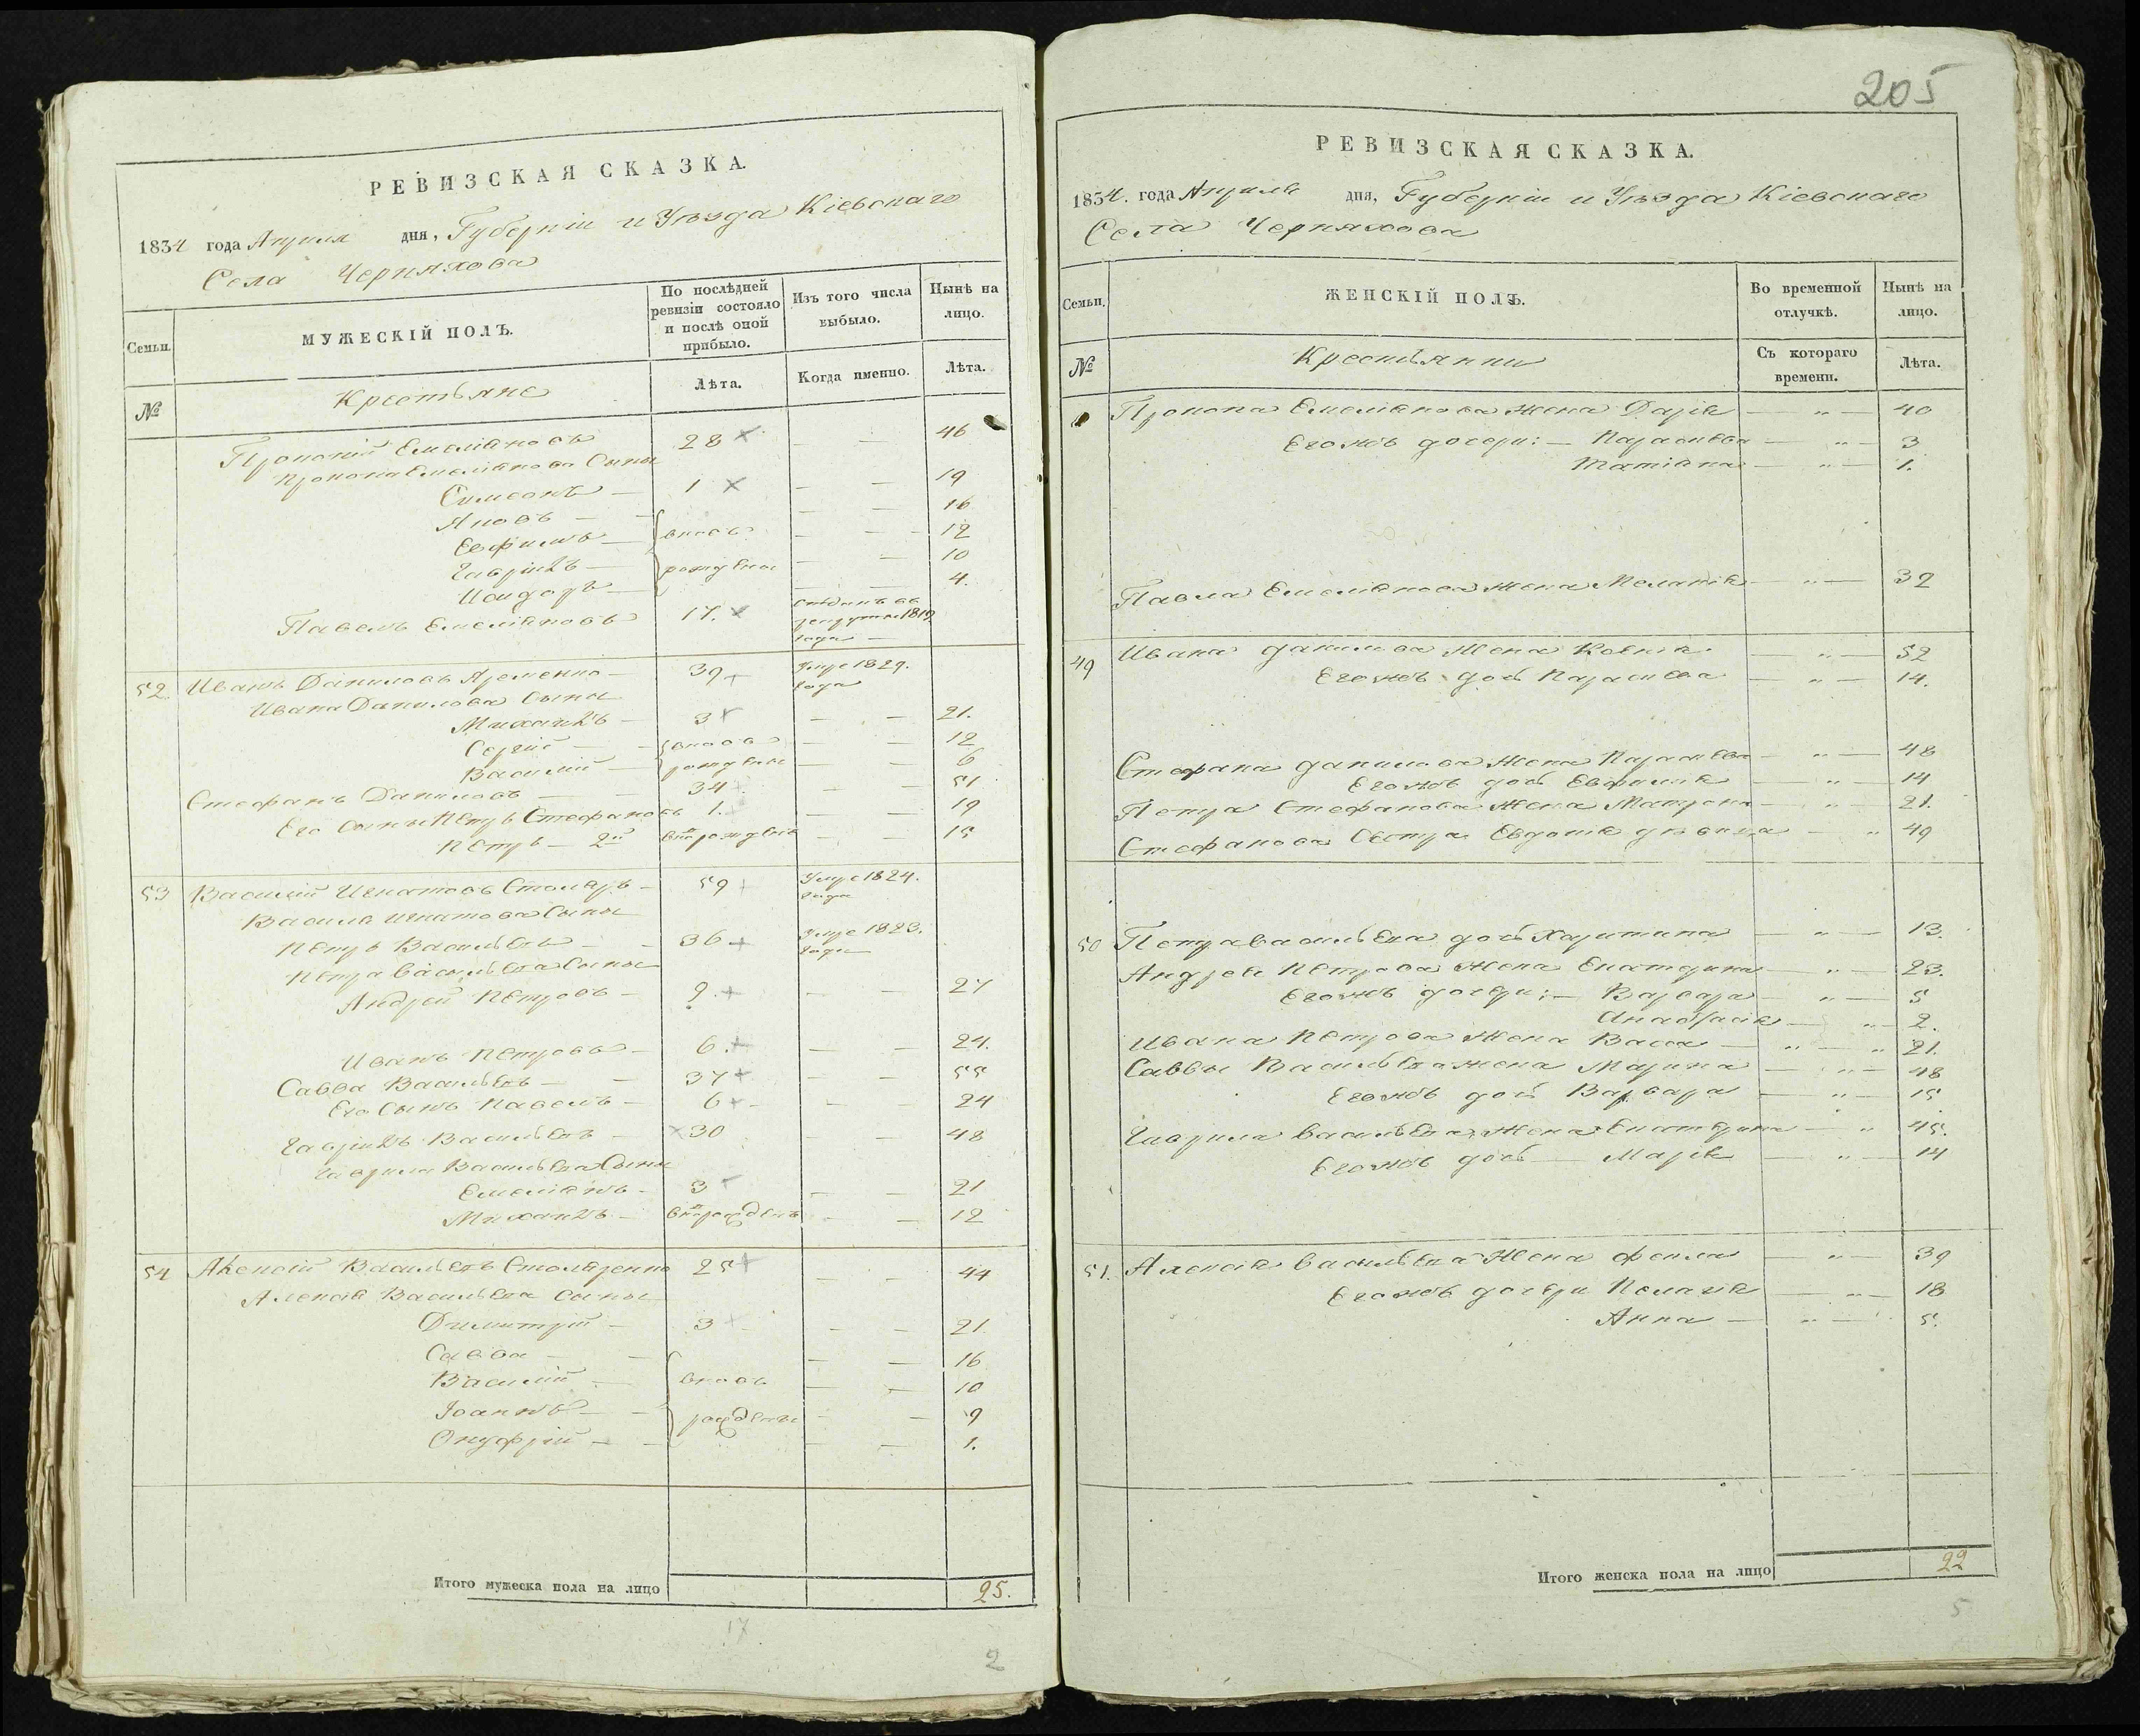 РЕВИЗСКАЯ СКАЗКА.
1834 года Апреля дня, Губерніи и Уѣзда Кіевскаго
Села Черняхова
Семьи.
МУЖЕСКІЙ ПОЛЪ.
По послѣдней ревизіи состояло и послѣ оной прибыло.
Изъ того числа выбыло.
Нынѣ на лицо.
№
Крестьяне
Лѣта.
Когда именно.
Лѣта.
Прокопій Емеліяновъ 28 × — — 46
Прокопа Емеліянова Сыны
Симеонъ — 1 × — — 19
Яковъ — — — — 16
Евфимъ — вновь — — 12
Гаврiилъ — рождены — — 10
Исидоръ — — — 4.
Павелъ Емеліяновъ 17. × отданъ въ рекруты 1819 года —
52 Иванъ Даниловъ Яременко — 39 + Умре 1829. года
Ивана Данилова Сыны
Михаилъ — 3 + — — 21.
Сергій — — вновь — — 12
Василій — рождены — — 6
Стефанъ Даниловъ — — 34 + — — 51
Его Сыны Петръ Стефановъ 1. — — 19
Петръ — 2й вновь рожденъ — — 15
53 Василій Игнатовъ Столяръ — 59 + Умре 1824. года
Василя Игнатова Сыны
Петръ Васильевъ — — 36 + Умре 1823. года
Петра Васильева Сыны
Андрей Петровъ — 9. + — — 27
Иванъ Петровъ — 6. + — — 24.
Савва Васильевъ — — 37 + — — 55
Его Сынъ Павелъ — 6 + — — 24
Гаврiилъ Васильевъ — × 30 — — 48
Гаврила Васильева Сыны
Емеліянъ — 3 + — — 21
Михаилъ — вновь рожденъ — — 12
54 Алексій Васильевъ Столяренко 25 + — — 44
Алексія Васильева Сыны
Димитрій — 3 + — — 21
Савва — — — — 16
Василій — вновь — — 10
Іоаннъ — — рождены — — 9
Онуфрій — — — — 1.
Итого мужеска пола на лицо 25.
17
2
205
РЕВИЗСКАЯ СКАЗКА.
1834. года Апреля дня, Губерніи и Уѣзда Кіевскаго
Села Черняхова
Семьи.
ЖЕНСКІЙ ПОЛЪ.
Во временной отлучкѣ.
Нынѣ на лицо.
№
Крестьянки
Съ котораго времени.
Лѣта.
Прокопа Емеліянова жена Дарія — „ — 40
Егожъ дочери: — Параскева — „ — 3
Татіяна — „ — 1.
Павла Емеліянова жена Меланія — „ — 32
49 Ивана Данилова жена Ксенія — „ — 52
Егожъ дочь Параскева — „ — 14.
Стефана Данилова жена Параскева — „ — 48
Егожъ дочь Евфимія — „ — 14
Петра Стефанова жена Матрона — „ — 21.
Стефанова Сестра Евдокія дѣвица — „ 49
50 Петра Васильева дочь Харитина — „ — 13.
Андрея Петрова жена Екатерина — „ — 23.
Егожъ дочери: — Варвара — „ — 5
Анастасія — „ — 2.
Ивана Петрова жена Васса — „ — „ 21.
Саввы Васильева жена Марина — „ — 48
Егожъ дочь Варвара — „ — 15
Гаврила Васильева жена Екатерина — „ 45.
Егожъ дочь — Марія — „ — 14
51. Алексія Васильева жена Фекла — „ — 39
Егожъ дочери Пелагія — „ — 18
Анна — „ — 5.
Итого женска пола на лицо 22
5